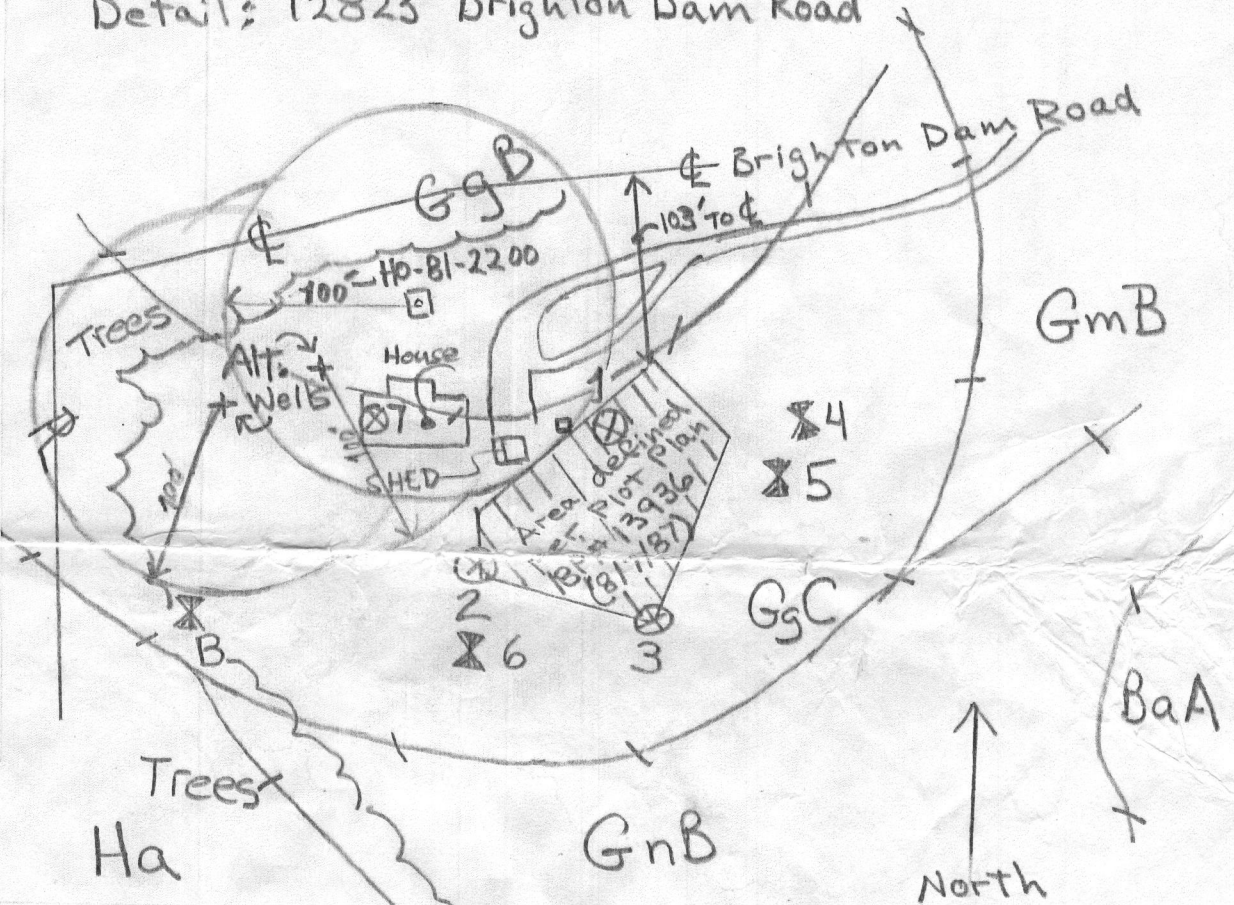 Detail: 12823 Brighton Dam Road
GgB
℄ Brighton Dam Road
103' TO ℄
℄
HO-81-2200
100'
Trees
Alt.
Wells
House
7
1
SHED
100'
100'
Area defined
Plot Plan
4
5
2
6
3
B
GmB
GgC
BaA
Trees
Ha
GnB
North